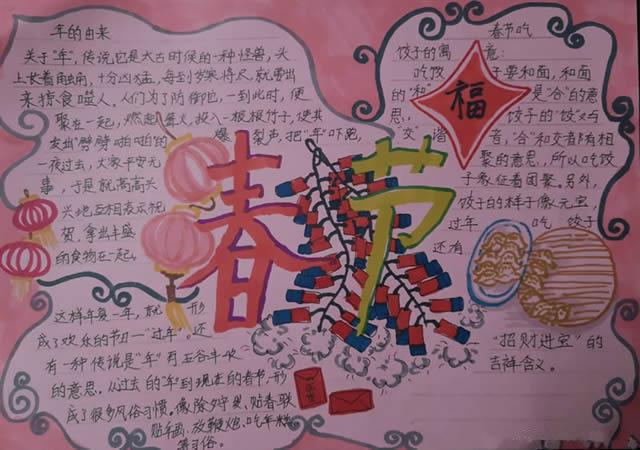 年的由来
关于"年",传说它是太古时候的一种怪兽,头
上长着角,十分凶猛,每到岁末将尽,就要出
来掠食噬人,人们为了防御它,一到此时,便
聚在一起,燃起篝火,投入一根根竹子,使其
发出"劈劈啪啪"的爆裂声,把"年"吓跑,
一夜过去,大家平安无
事,于是就高高兴
兴地互相表示祝
贺,拿出丰盛
的食物在一起。
这样年复一年,就形
成了欢乐的节日一"过年"。还
有一种传说是"年"有五谷丰收
的意思。从过去的"年"到现在的春节,形
成了很多风俗习惯。像除夕守岁、贴春联
贴年画、放鞭炮、吃年糕
等习俗。
春节
福
春节吃
饺子的寓意:
吃饺子要和面,和面
的"和"是"合"的意
思;饺子的"饺"又与
"交"谐音,"合"和交者都有相
聚的意思,所以吃饺
子象征着团聚。另外,
饺子的样子像元宝,
过年吃饺子
还有
"招财进宝"的
吉祥含义。